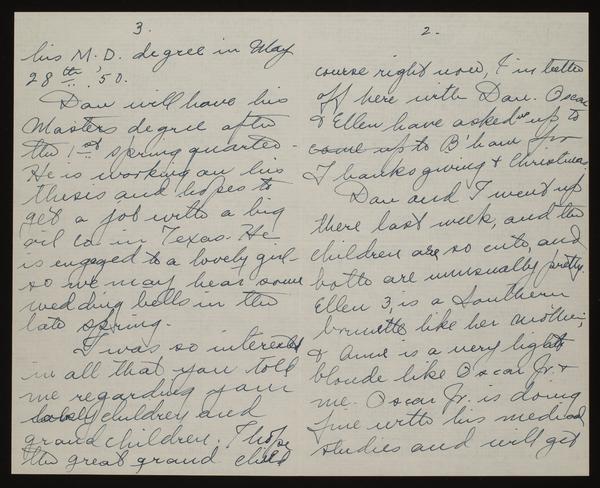 2.
course right now, I'm better
off here with Dan. Oscar
& Ellen have asked us up to
come up to B'ham for
Thanksgiving & Christmas.
Dan and I went up
there last week, and the
children are so cute, and
both are unusually pretty.
Ellen 3, is a Southern
brunette like her mother,
& Anne is a very light
blonde like Oscar Jr. &
me. Oscar Jr. is doing
fine with his medical
studies and will get
3.
his M.D. degree in May
28th, '50.
Dan will have his
Masters degree after
the 1st spring quarter.
He is working on his
thesis and hopes to
get a job with a big
oil co. in Texas. He
is engaged to a lovely girl -
so we may hear some
wedding bells in the
late spring.
I was so interested
in all that you told
me regarding your
lovely children and
grandchildren. I hope
the great grand child